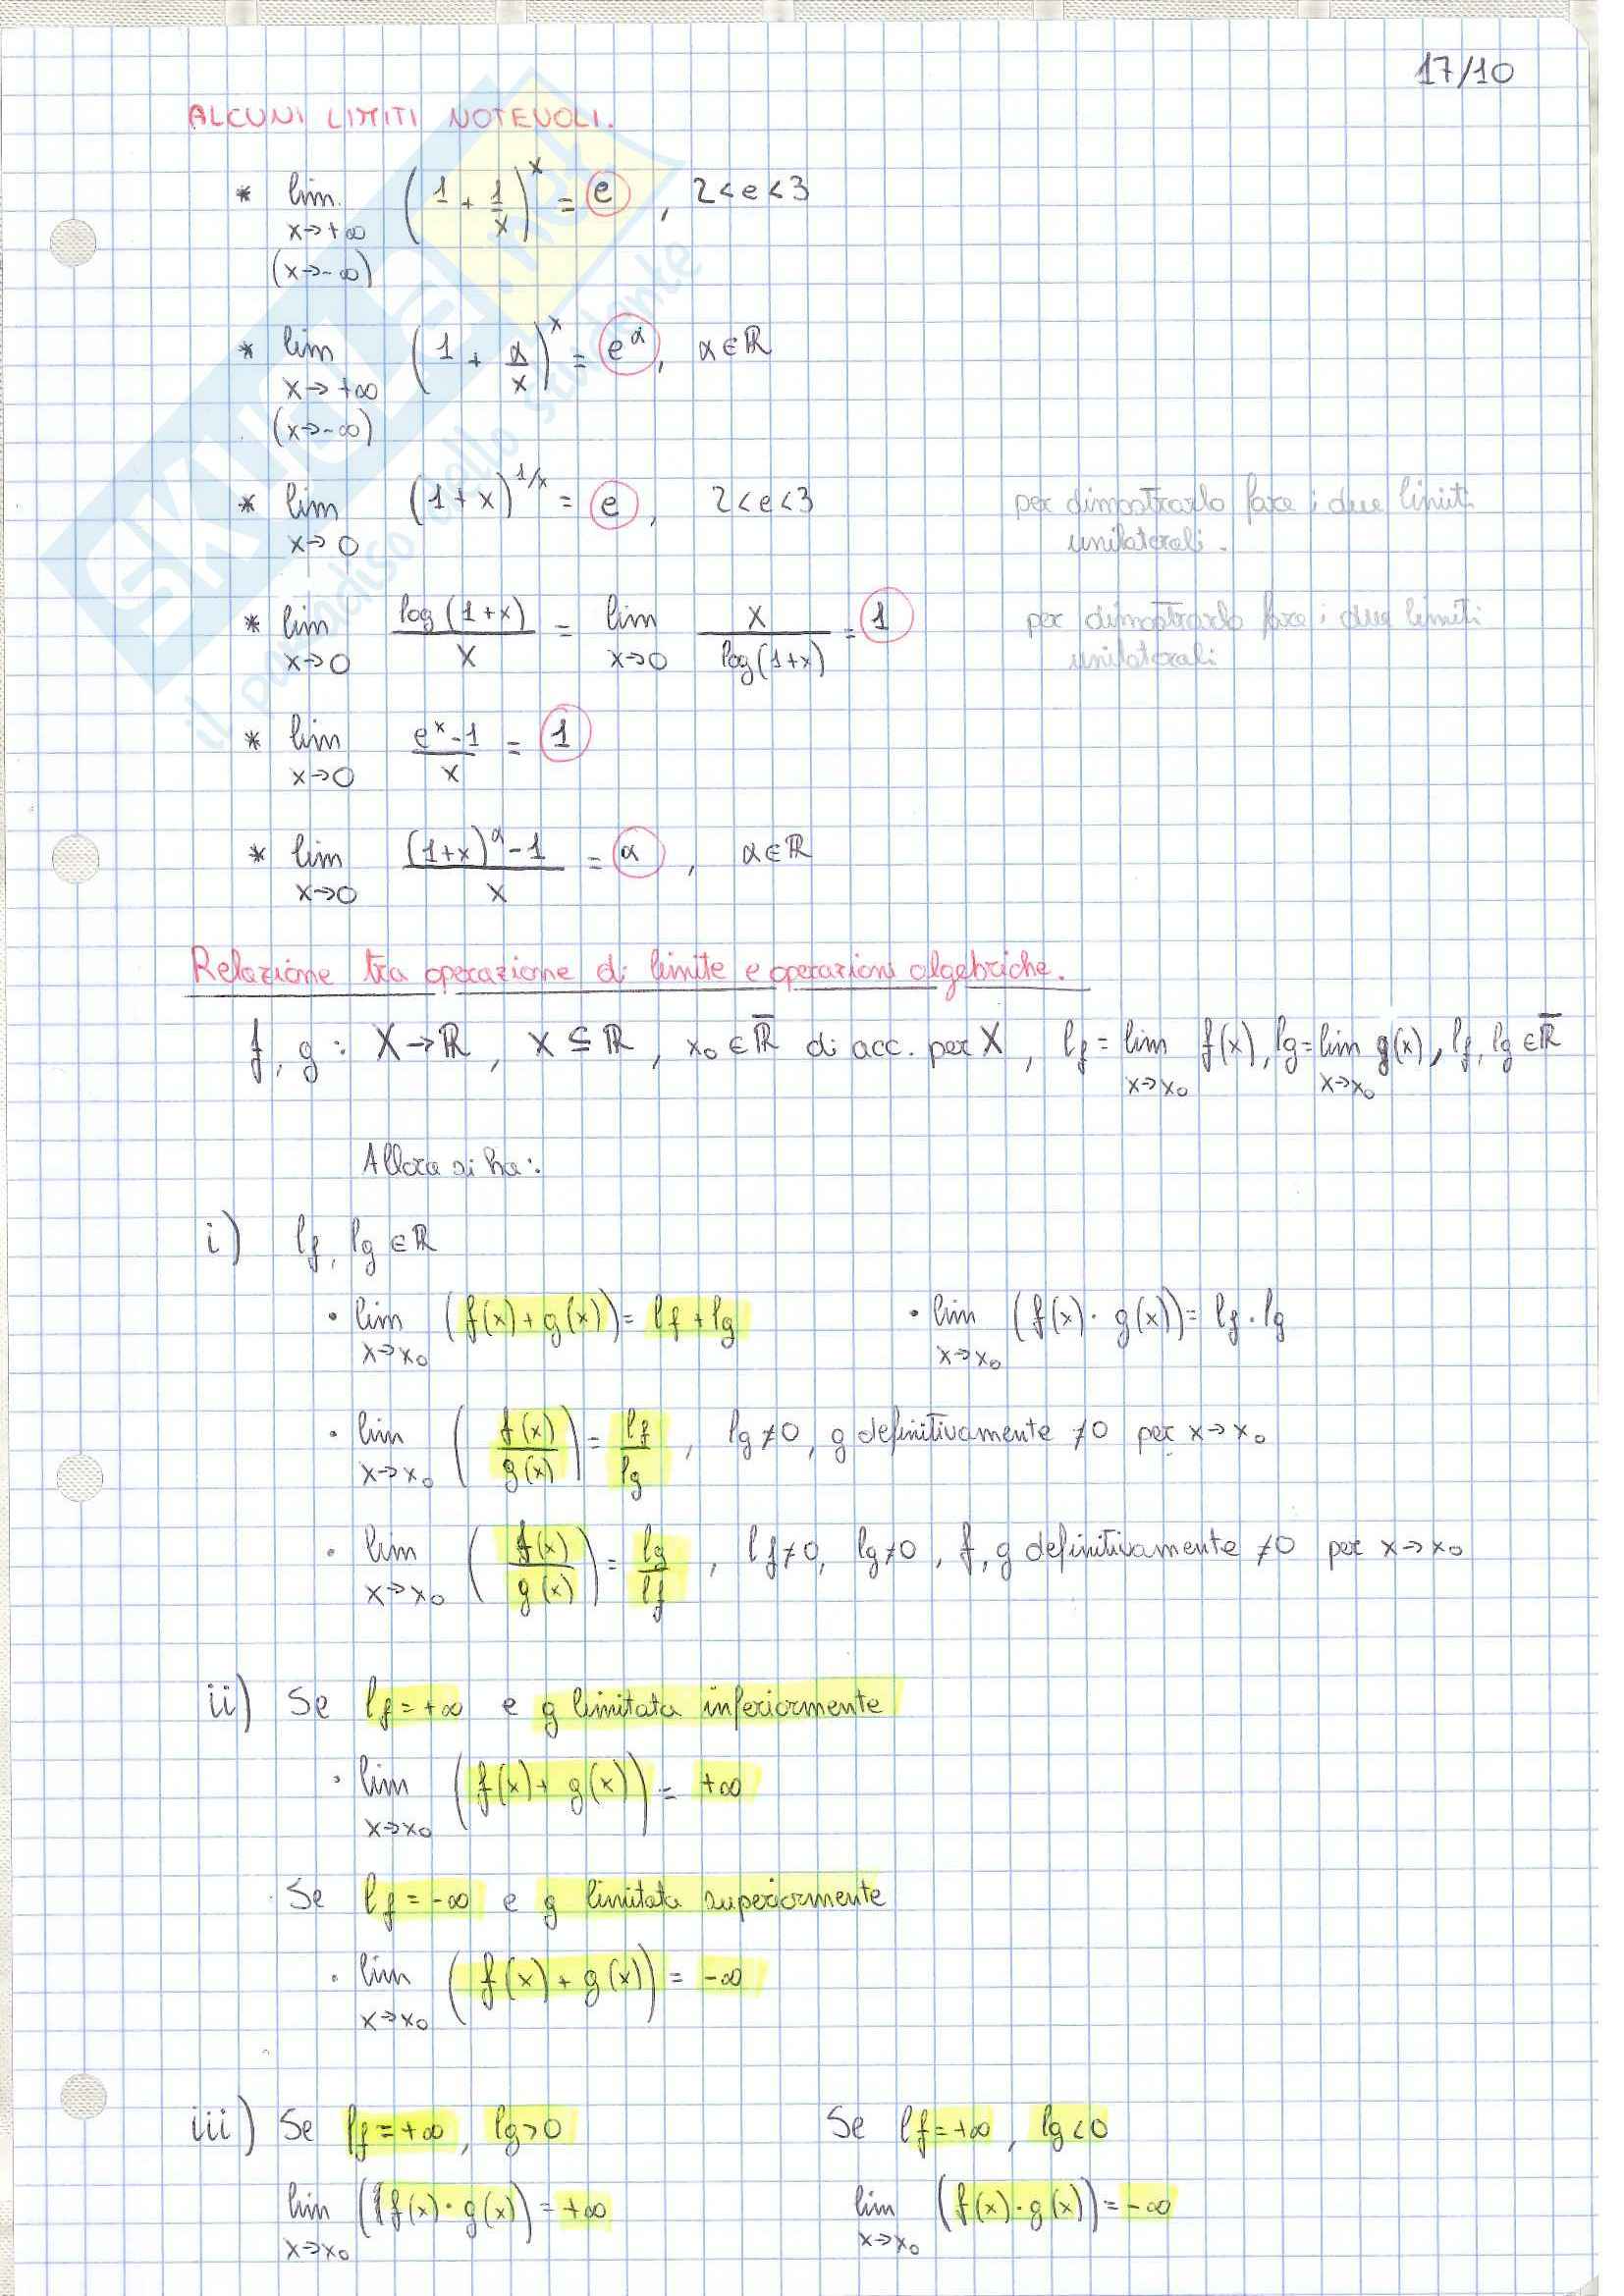 17/10
ALCUNI LIMITI NOTEVOLI.
* lim x→+∞ (x→-∞) (1 + 1/x)^x = e, 2<e<3
* lim x→+∞ (x→-∞) (1 + α/x)^x = e^α, α∈ℝ
* lim x→0 (1+x)^{1/x} = e, 2<e<3 per dimostrarlo fare i due limiti
unilaterali.
* lim x→0 log(1+x)/x = lim x→0 x/log(1+x) = 1 per dimostrarlo fare i due limiti
unilaterali
* lim x→0 (e^x-1)/x = 1
* lim x→0 ((1+x)^α-1)/x = α, α∈ℝ
Relazione tra operazione di limite e operazioni algebriche.
f, g: X→ℝ, X⊆ℝ, x₀∈ℝ̅ di acc. per X, lf = lim x→x₀ f(x), lg = lim x→x₀ g(x), lf, lg ∈ℝ̅
Allora si ha:
i) lf, lg ∈ℝ
· lim x→x₀ (f(x)+g(x)) = lf + lg · lim x→x₀ (f(x)· g(x)) = lf · lg
· lim x→x₀ (f(x)/g(x)) = lf/lg, lg≠0, g definitivamente ≠0 per x→x₀
· lim x→x₀ (f(x)/g(x)) = lg/lf, lf≠0, lg≠0, f, g definitivamente ≠0 per x→x₀
ii) Se lf=+∞ e g limitata inferiormente
· lim x→x₀ (f(x)+ g(x)) = +∞
Se lf=-∞ e g limitata superiormente
· lim x→x₀ (f(x)+ g(x)) = -∞
iii) Se lf=+∞, lg>0 Se lf=+∞, lg<0
lim x→x₀ (f(x)· g(x)) = +∞ lim x→x₀ (f(x)·g(x)) = -∞
SKUOLA.net
il paradiso dello studente